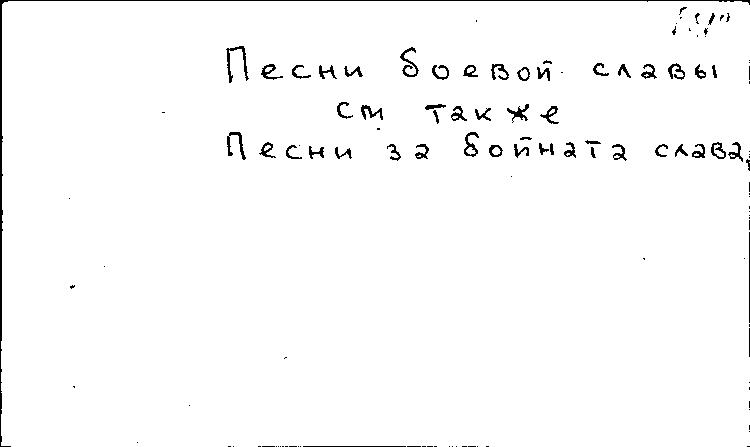 Песни боевой славы
см также
Песни за бойната слава